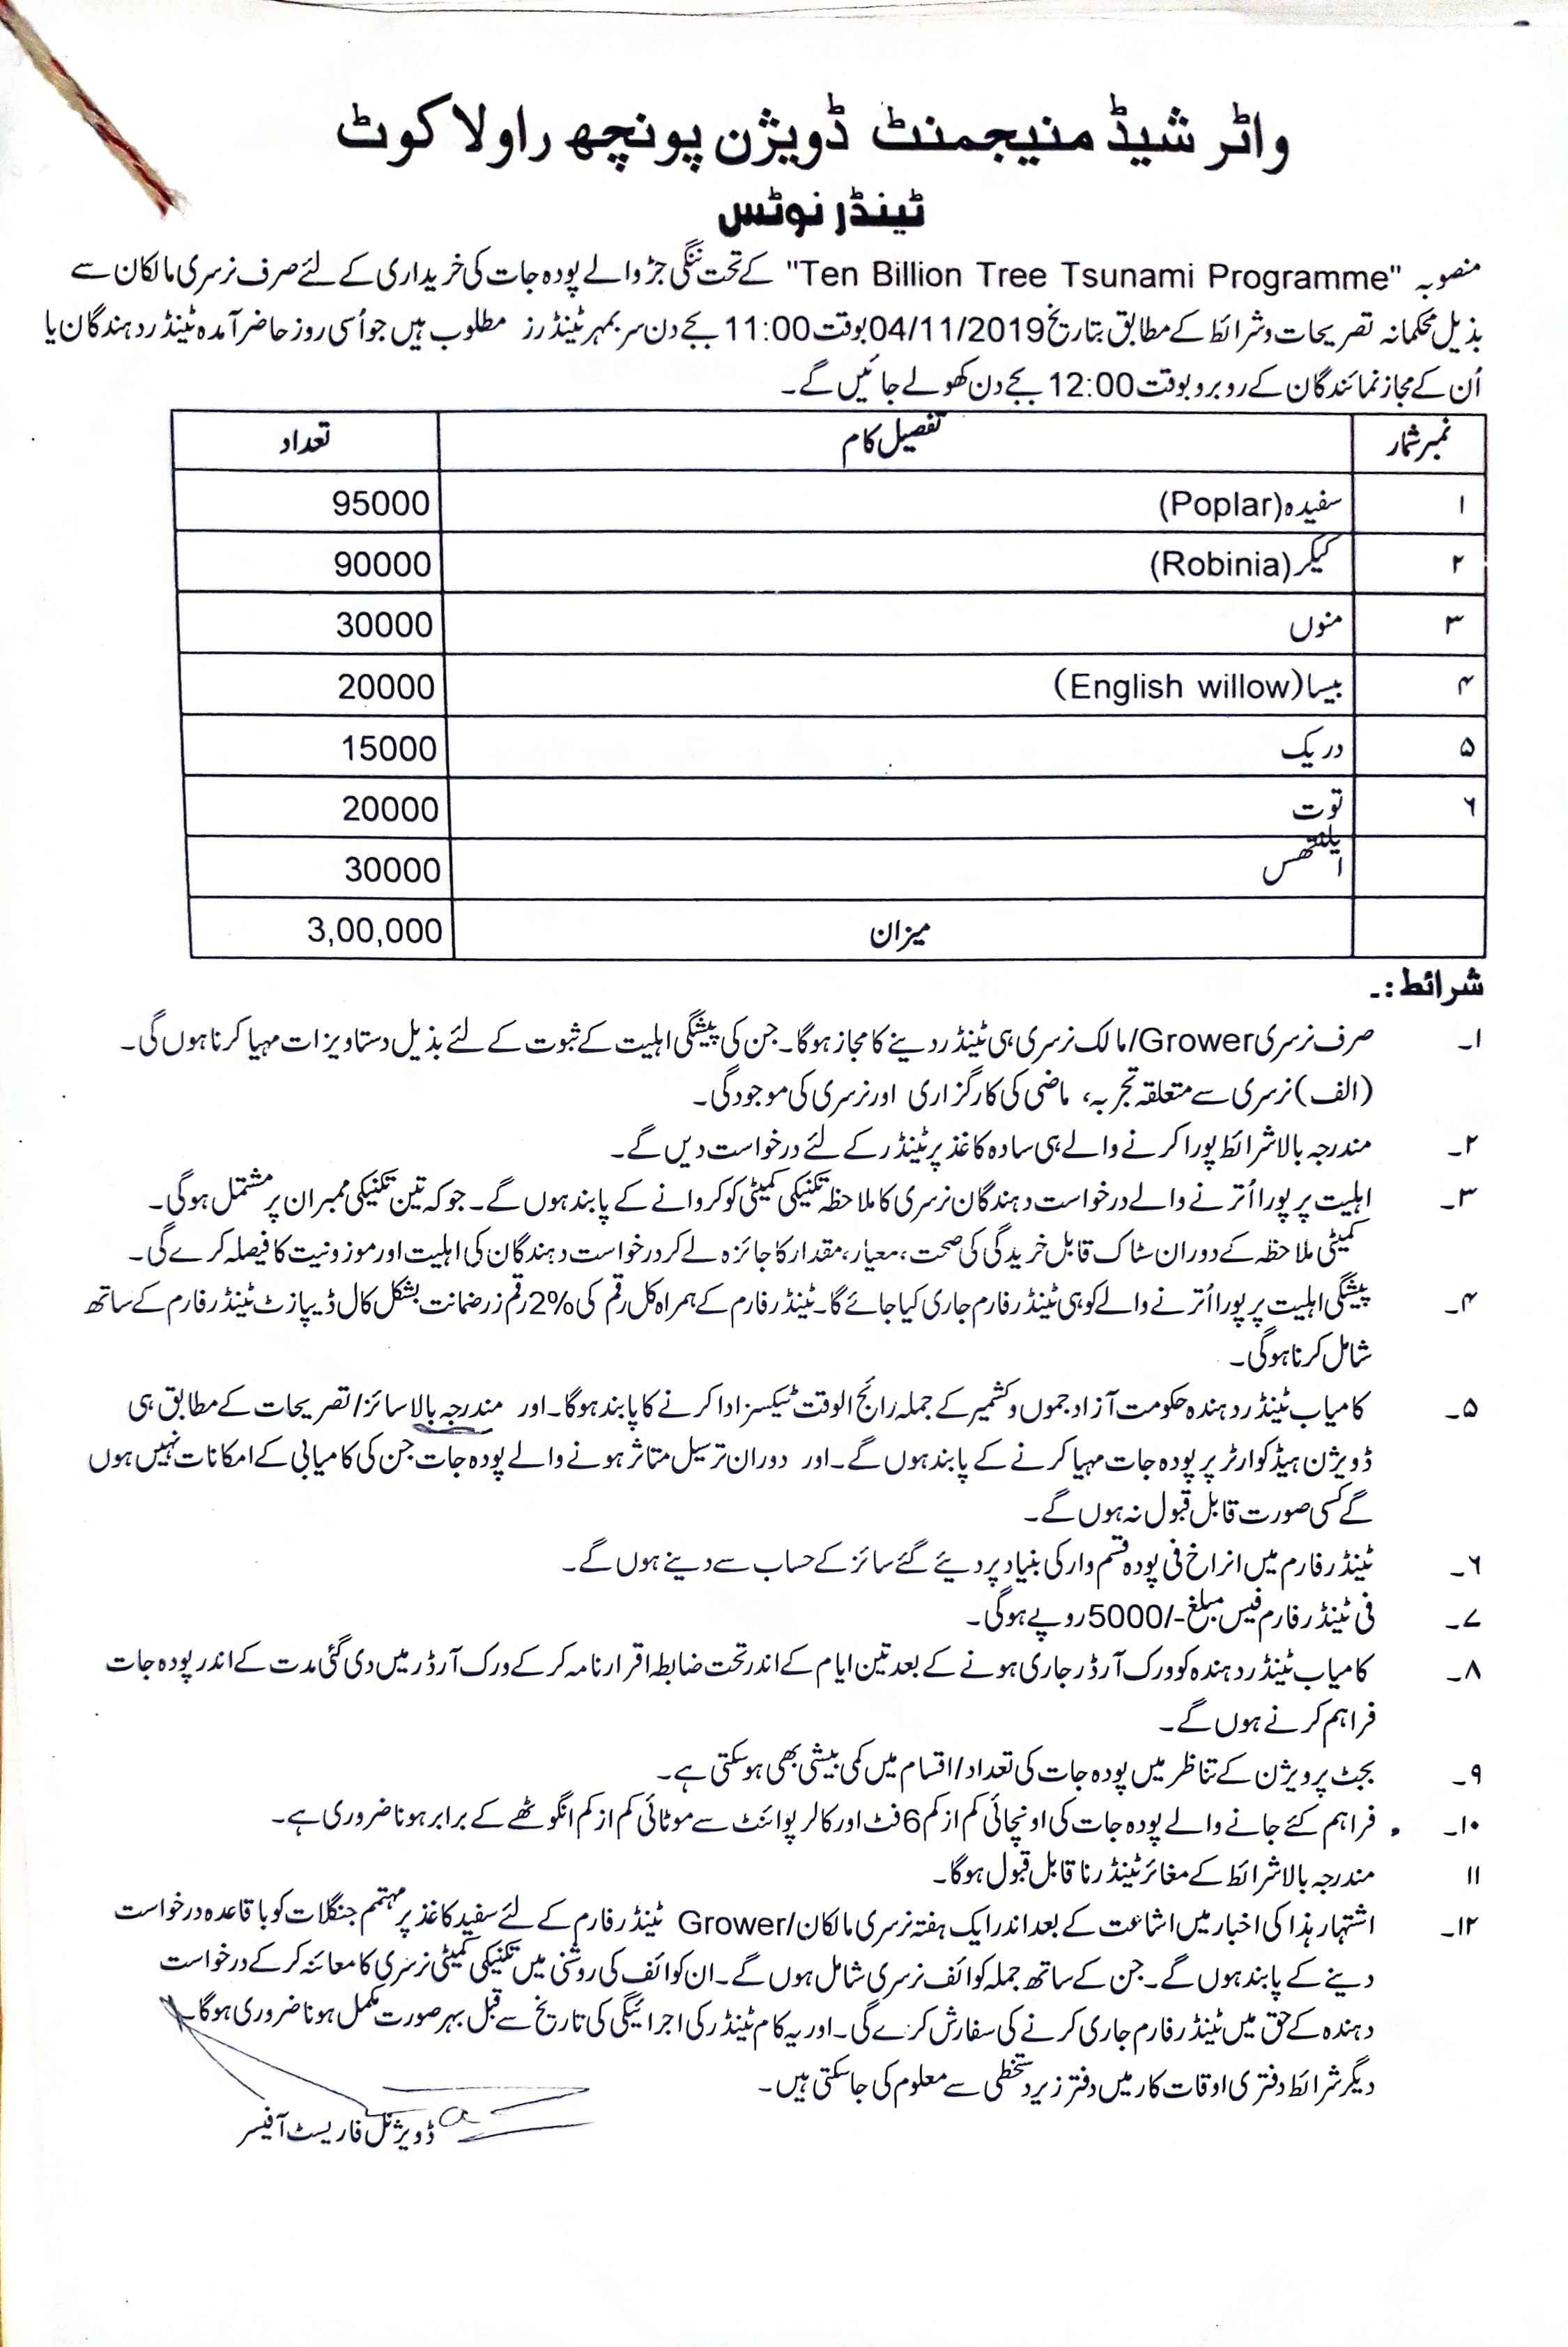 واٹر شیڈ منیجمنٹ ڈویژن پونچھ راولاکوٹ
ٹینڈر نوٹس
منصوبہ "Ten Billion Tree Tsunami Programme" کے تحت ننگی جڑ والے پودہ جات کی خریداری کے لئے صرف نرسری مالکان سے
بذیل محکمانہ تصریحات و شرائط کے مطابق بتاریخ 04/11/2019 بوقت 11:00 بجے دن سر بمہر ٹینڈرز مطلوب ہیں جو اُسی روز حاضر آمدہ ٹینڈر دہندگان یا
اُن کے مجاز نمائندگان کے روبرو بوقت 12:00 بجے دن کھولے جائیں گے۔
نمبر شمار تفصیل کام تعداد
۱ سفیدہ (Poplar) 95000
۲ کیکر (Robinia) 90000
۳ منوں 30000
۴ بیسا (English willow) 20000
۵ دریک 15000
۶ توت 20000
ایلنتھس 30000
میزان 3,00,000
شرائط:۔
۱۔ صرف نرسری Grower/مالک نرسری ہی ٹینڈر دینے کا مجاز ہوگا۔ جن کی پیشگی اہلیت کے ثبوت کے لئے بذیل دستاویزات مہیا کرنا ہوں گی۔
(الف) نرسری سے متعلقہ تجربہ، ماضی کی کارگزاری اور نرسری کی موجودگی۔
۲۔ مندرجہ بالا شرائط پورا کرنے والے ہی سادہ کاغذ پر ٹینڈر کے لئے درخواست دیں گے۔
۳۔ اہلیت پر پورا اُترنے والے درخواست دہندگان نرسری کا ملاحظہ تکنیکی کمیٹی کو کروانے کے پابند ہوں گے۔ جو کہ تین تکنیکی ممبران پر مشتمل ہوگی۔
کمیٹی ملاحظہ کے دوران سٹاک قابل خریدگی کی صحت، معیار، مقدار کا جائزہ لے کر درخواست دہندگان کی اہلیت اور موزونیت کا فیصلہ کرے گی۔
۴۔ پیشگی اہلیت پر پورا اُترنے والے کو ہی ٹینڈر فارم جاری کیا جائے گا۔ ٹینڈر فارم کے ہمراہ کل رقم کی 2% رقم زرضمانت بشکل کال ڈیپازٹ ٹینڈر فارم کے ساتھ
شامل کرنا ہوگی۔
۵۔ کامیاب ٹینڈر دہندہ حکومت آزاد جموں و کشمیر کے جملہ رائج الوقت ٹیکسز ادا کرنے کا پابند ہوگا۔ اور مندرجہ بالا سائز/تصریحات کے مطابق ہی
ڈویژن ہیڈ کوارٹر پر پودہ جات مہیا کرنے کے پابند ہوں گے۔ اور دوران ترسیل متاثر ہونے والے پودہ جات جن کی کامیابی کے امکانات نہیں ہوں
گے کسی صورت قابل قبول نہ ہوں گے۔
۶۔ ٹینڈر فارم میں انراخ فی پودہ قسم وار کی بنیاد پر دیئے گئے سائز کے حساب سے دینے ہوں گے۔
۷۔ فی ٹینڈر فارم فیس مبلغ -/5000 روپے ہوگی۔
۸۔ کامیاب ٹینڈر دہندہ کو ورک آرڈر جاری ہونے کے بعد تین ایام کے اندر تحت ضابطہ اقرار نامہ کر کے ورک آرڈر میں دی گئی مدت کے اندر پودہ جات
فراہم کرنے ہوں گے۔
۹۔ بجٹ پرویژن کے تناظر میں پودہ جات کی تعداد/اقسام میں کمی بیشی بھی ہوسکتی ہے۔
۱۰۔ فراہم کئے جانے والے پودہ جات کی اونچائی کم از کم 6 فٹ اور کالر پوائنٹ سے موٹائی کم از کم انگوٹھے کے برابر ہونا ضروری ہے۔
۱۱ مندرجہ بالا شرائط کے مغائر ٹینڈر نا قابل قبول ہوگا۔
۱۲۔ اشتہار ہذا کی اخبار میں اشاعت کے بعد اندر ایک ہفتہ نرسری مالکان/Grower ٹینڈر فارم کے لئے سفید کاغذ پر مہتمم جنگلات کو باقاعدہ درخواست
دینے کے پابند ہوں گے۔ جن کے ساتھ جملہ کوائف نرسری شامل ہوں گے۔ ان کوائف کی روشنی میں تکنیکی کمیٹی نرسری کا معائنہ کر کے درخواست
دہندہ کے حق میں ٹینڈر فارم جاری کرنے کی سفارش کرے گی۔ اور یہ کام ٹینڈر کی اجرائیگی کی تاریخ سے قبل بہر صورت مکمل ہونا ضروری ہوگا۔
دیگر شرائط دفتری اوقات کار میں دفتر زیر دستخطی سے معلوم کی جاسکتی ہیں۔
ڈویژنل فاریسٹ آفیسر